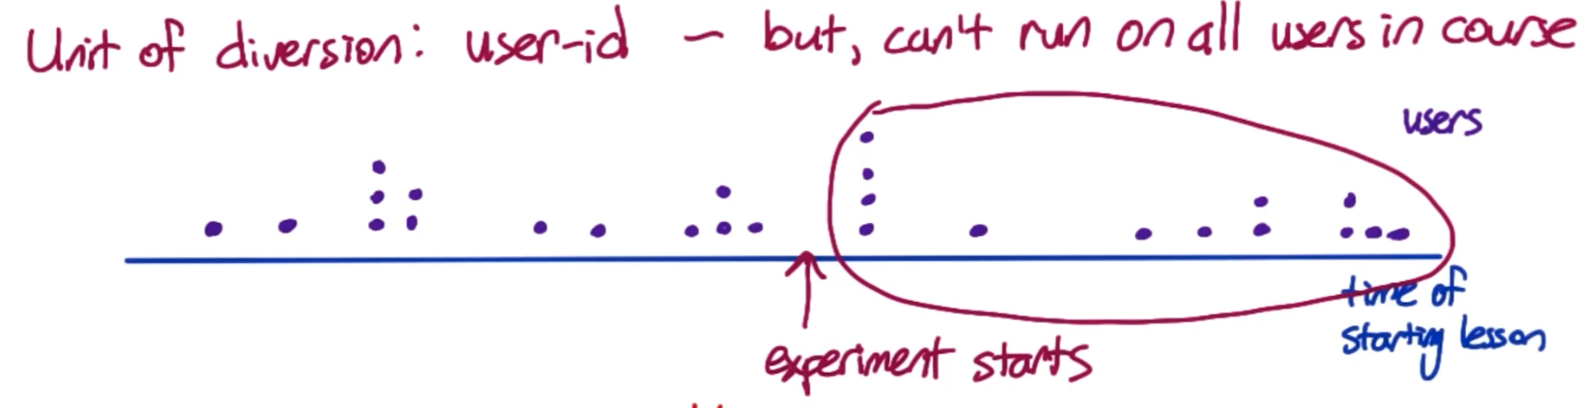 Unit of diversion: user-id – but, can't run on all users in course
users
time of
starting lesson
experiment starts